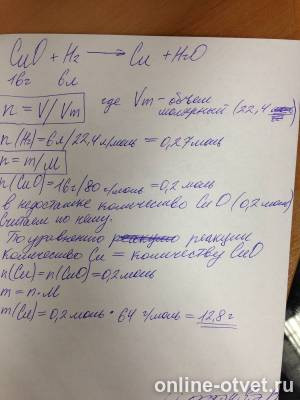 CuO + H₂ → Cu + H₂O
16г 6л
n = V/Vm где Vm - объем
молярный (22,4
n(H₂) = 6л/22,4 л/моль = 0,27моль
n = m/M
n(CuO) = 16г/80 г/моль = 0,2 моль
в недостатке количество CuO (0,2моль)
считаем по нему.
По уравнению реакции
количество Cu = количеству CuO
n(Cu) = n(CuO) = 0,2моль
m = n·M
m(Cu) = 0,2моль · 64 г/моль = 12,8г
online-otvet.ru